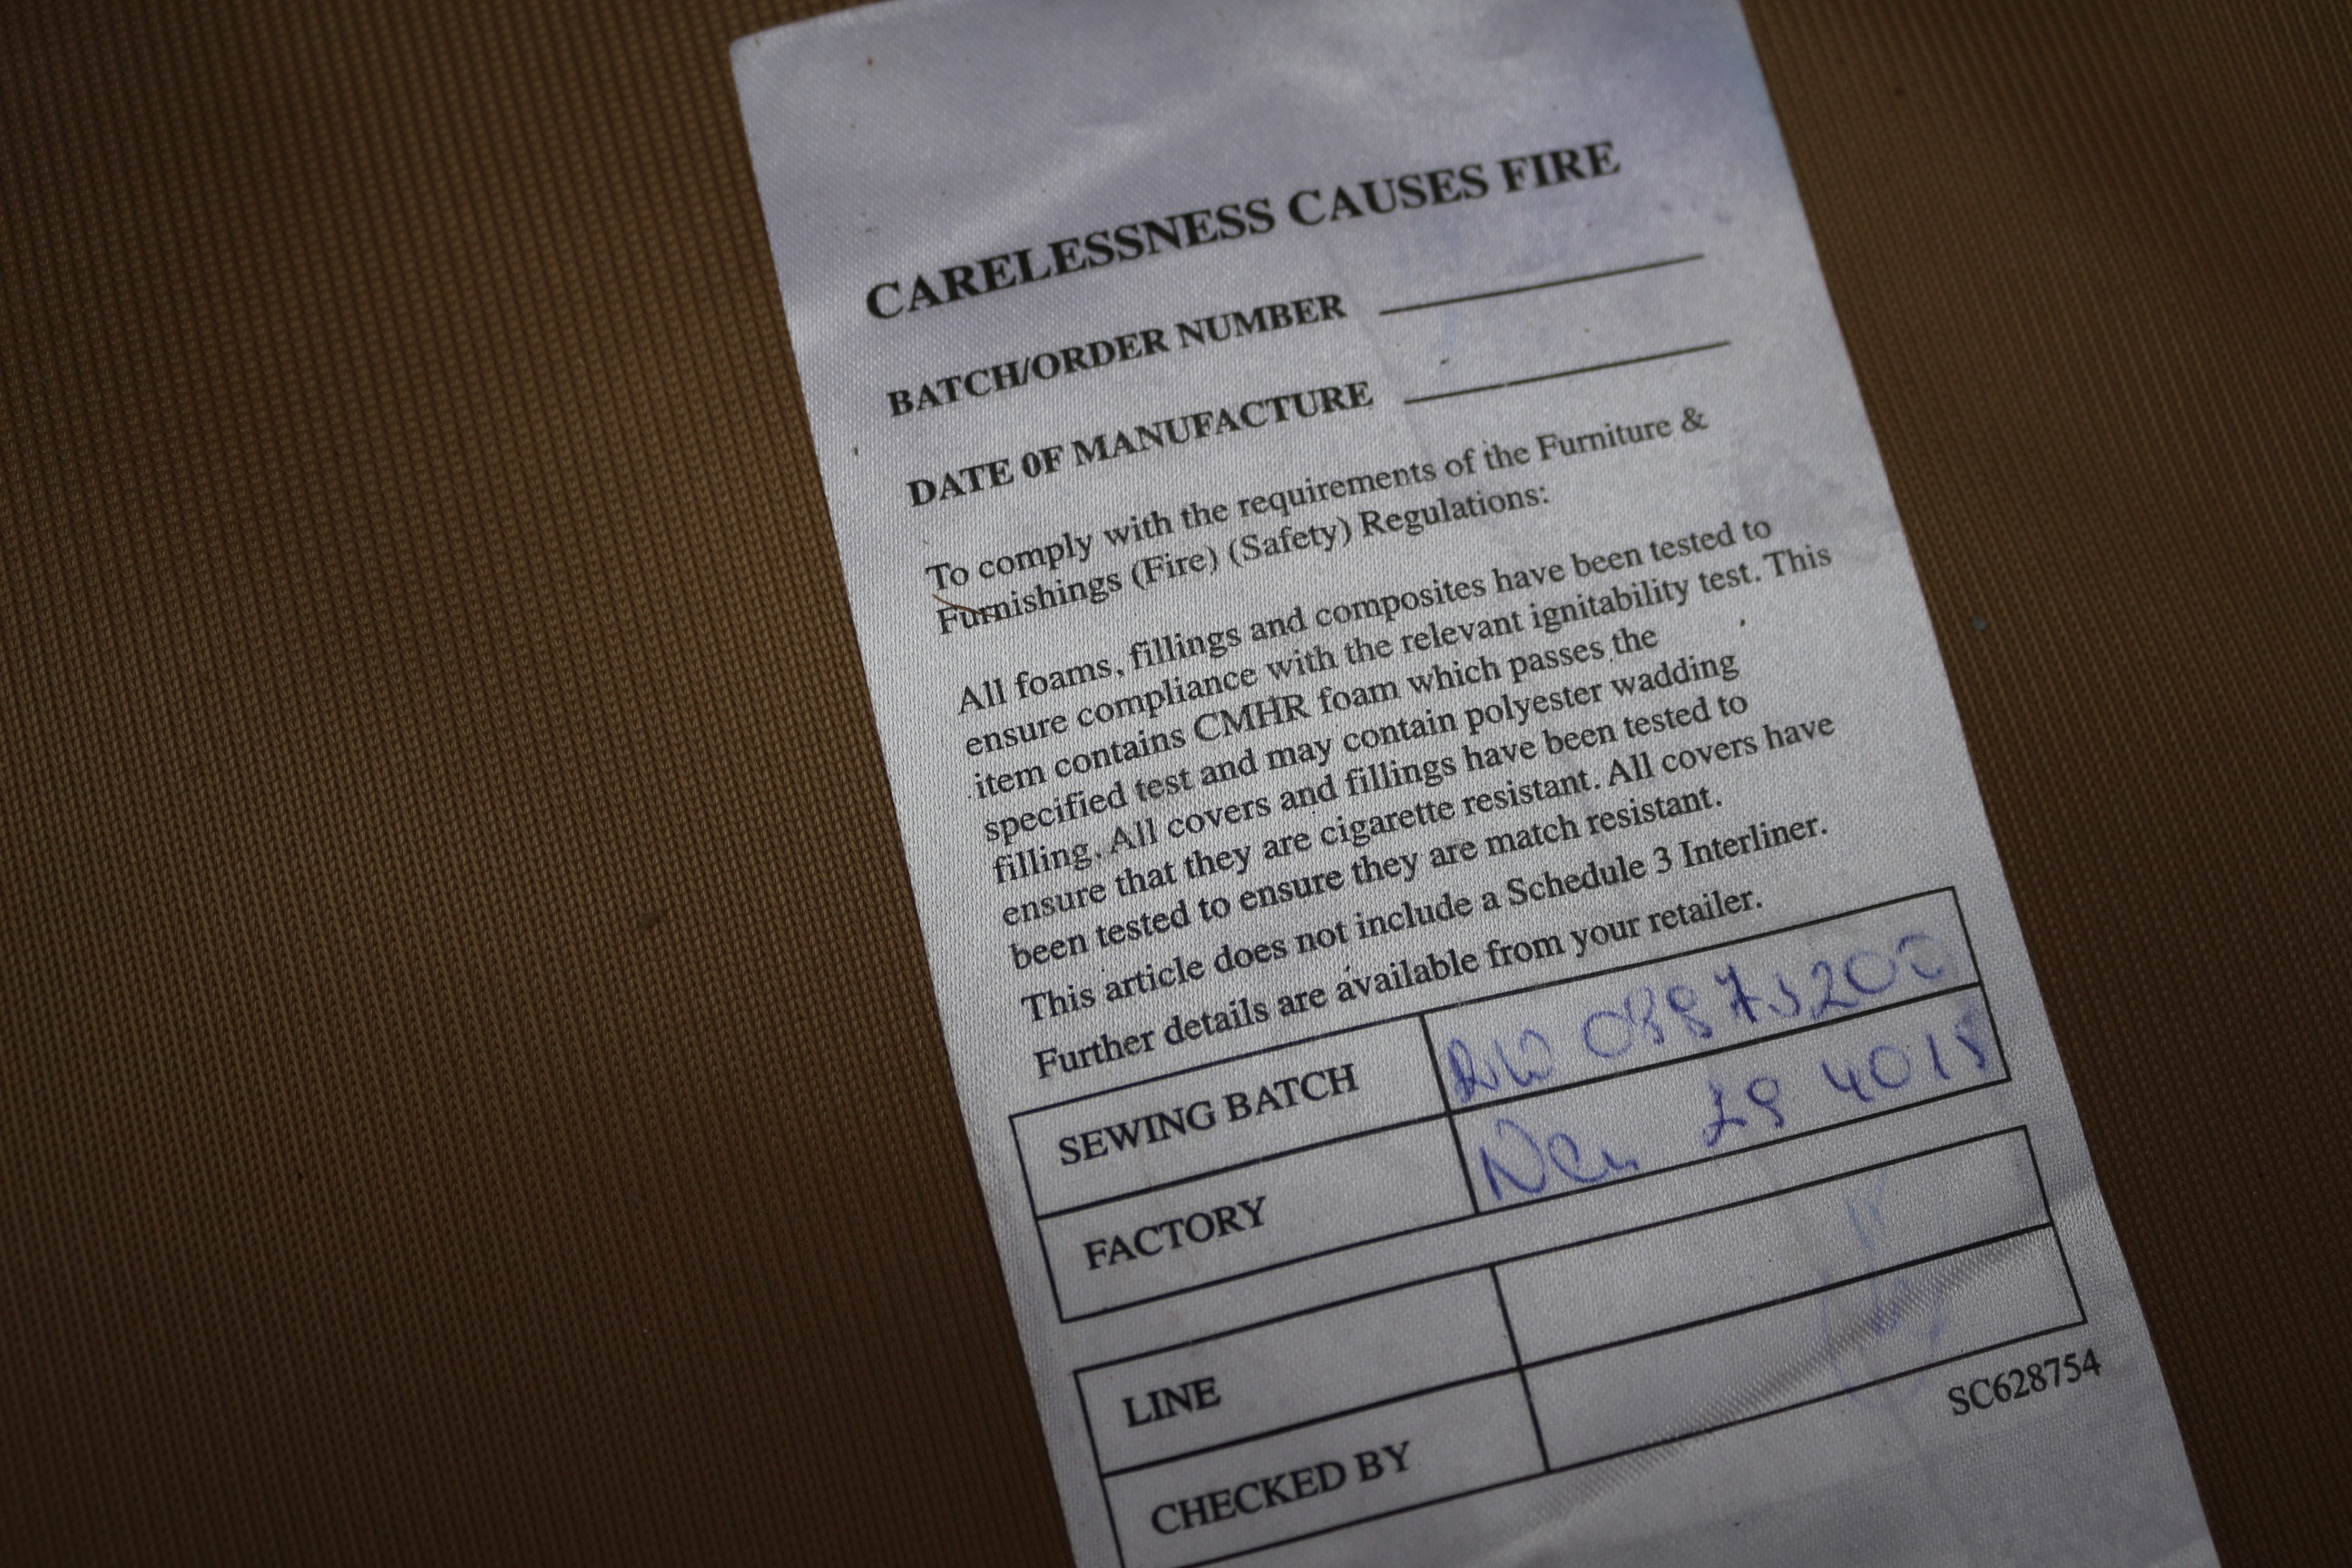 CARELESSNESS CAUSES FIRE
BATCH/ORDER NUMBER
DATE 0F MANUFACTURE
To comply with the requirements of the Furniture &
Furnishings (Fire) (Safety) Regulations:
All foams, fillings and composites have been tested to
ensure compliance with the relevant ignitability test. This
item contains CMHR foam which passes the
specified test and may contain polyester wadding
filling. All covers and fillings have been tested to
ensure that they are cigarette resistant. All covers have
been tested to ensure they are match resistant.
This article does not include a Schedule 3 Interliner.
Further details are available from your retailer.
SEWING BATCH
FACTORY
LINE
CHECKED BY
SC628754